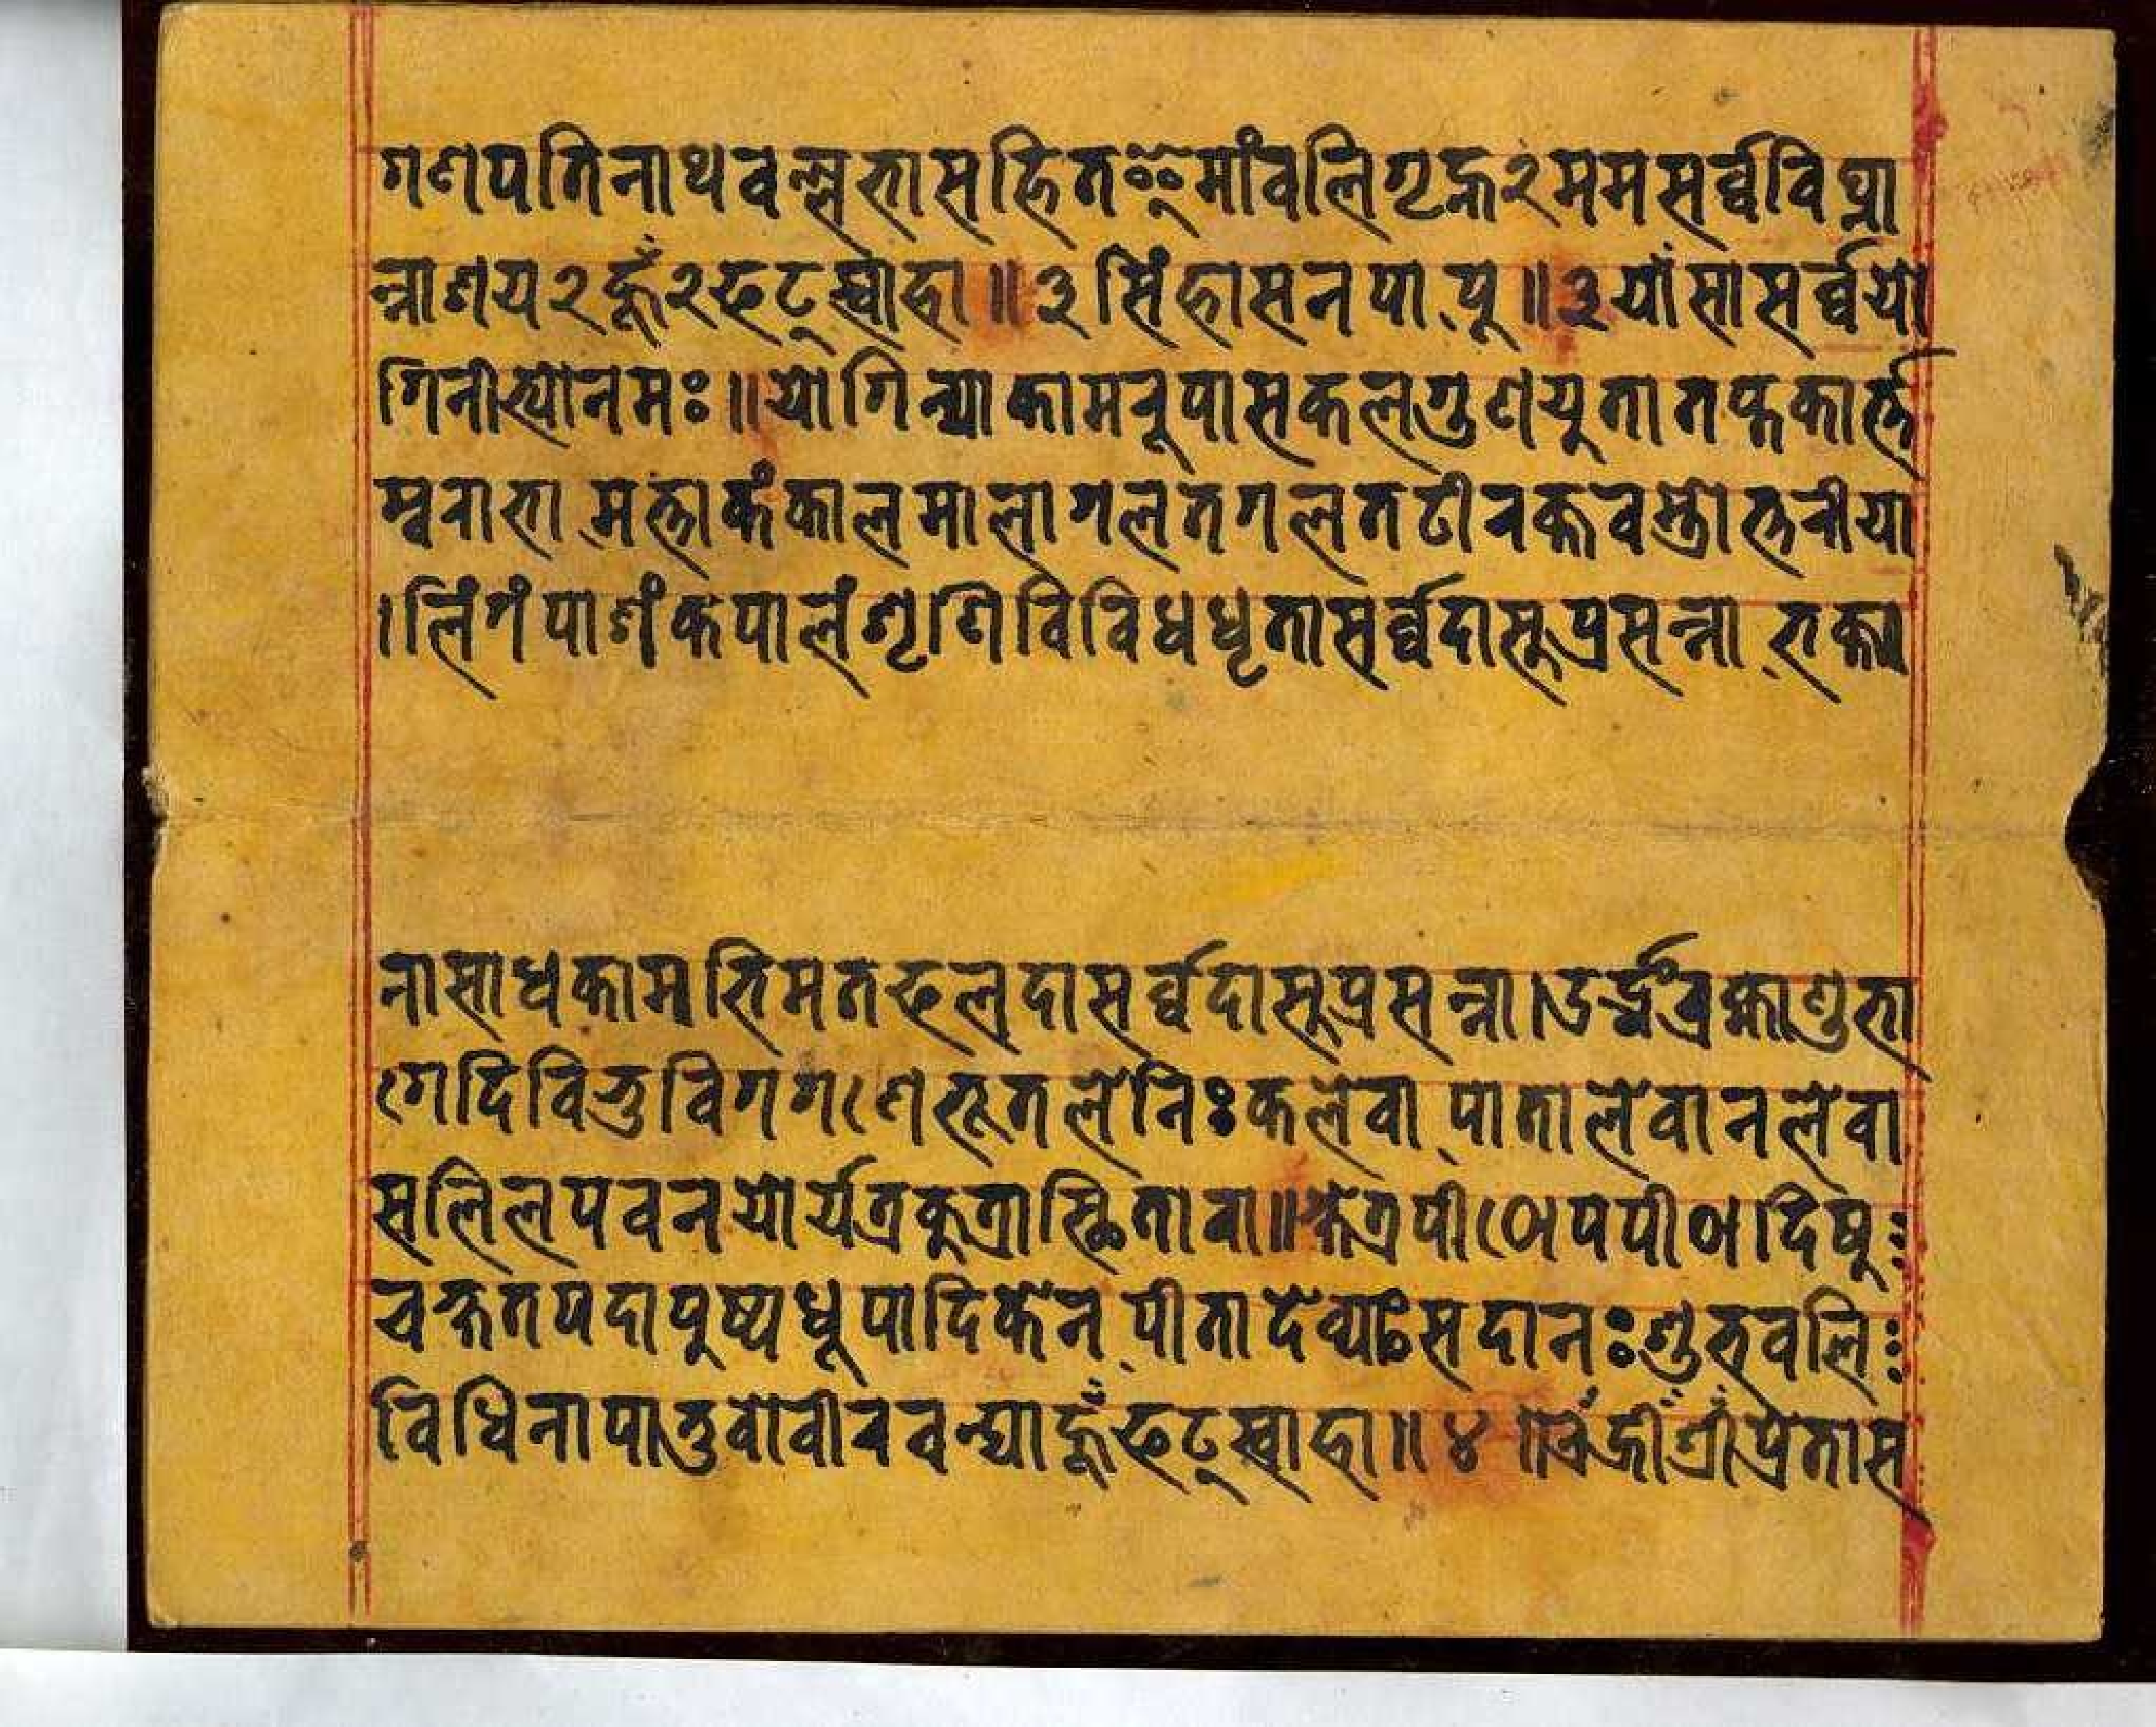 गणपतिनाथवल्लभासहितइमांवलिगृह्ण२ममसर्व्वविघ्ना
न्नाशय२हूँ२फट्स्वाहा॥३सिंहासनपापू॥३यांसासर्व्वयो
गिनीभ्योनमः॥योगिन्याकामरूपासकलगुणयुतातप्तकार्त्त
स्वराभामत्ताकंकालमालागलतगलतटीरक्तवस्त्रोत्तरीया
।लिंगंपाशंकपालंशृणिविविधधृतासर्व्वदासुप्रसन्नाभक्ता
नासाधकामभिमतफलदासर्व्वदासुप्रसन्ना।उर्द्ध्वंब्रह्माण्डभा
गेदिविभुविगगणेभूतलेनिःकलेवापातालेवानलेवा
सलिलपवनयोर्यत्रकुत्रास्थितावा॥क्षेत्रपीठोपपीठादिषु
चकृतपदापुष्पधूपादिकेनपीतादेव्यःसदानःशुभवलि
विधिनापातुवोवीरवन्द्याहूँफट्स्वाहा॥४॥ऐंह्रीँश्रीँप्रेतास